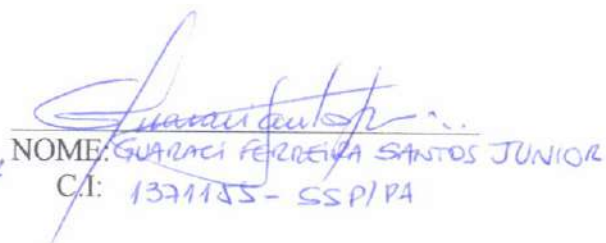 NOME: GUARACI FERREIRA SANTOS JUNIOR
C.I: 1371155 - SSP/PA